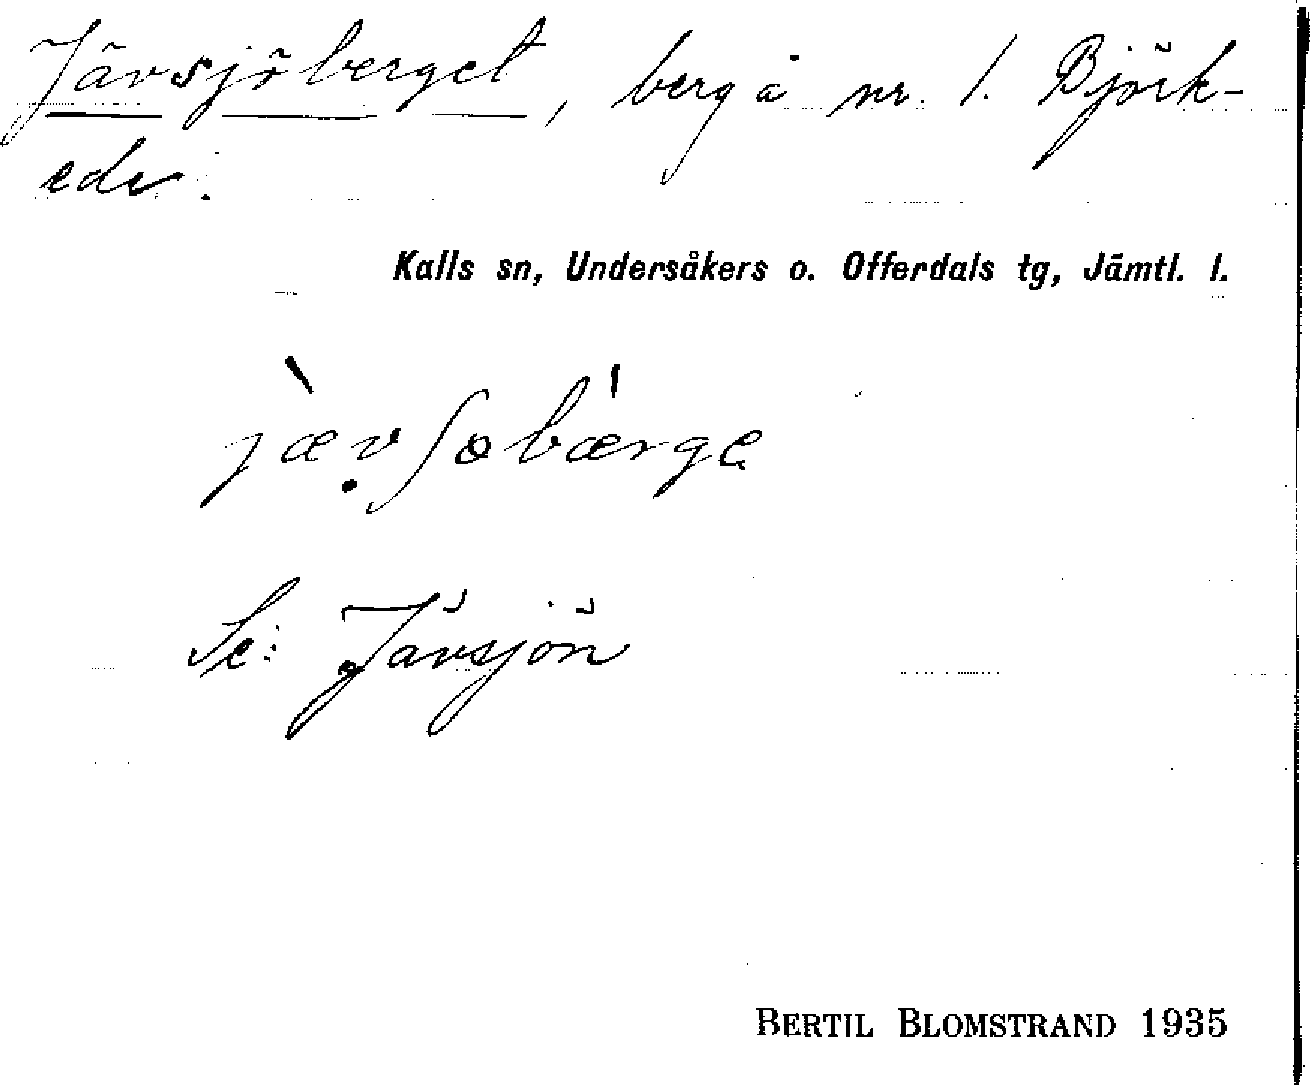 Jävsjöberget, berg å nr. 1. Björk-
ede.
Kalls sn, Undersåkers o. Offerdals tg, Jämtl. l.
jævʃøbærge
Se: Jävsjön
BERTIL BLOMSTRAND 1935